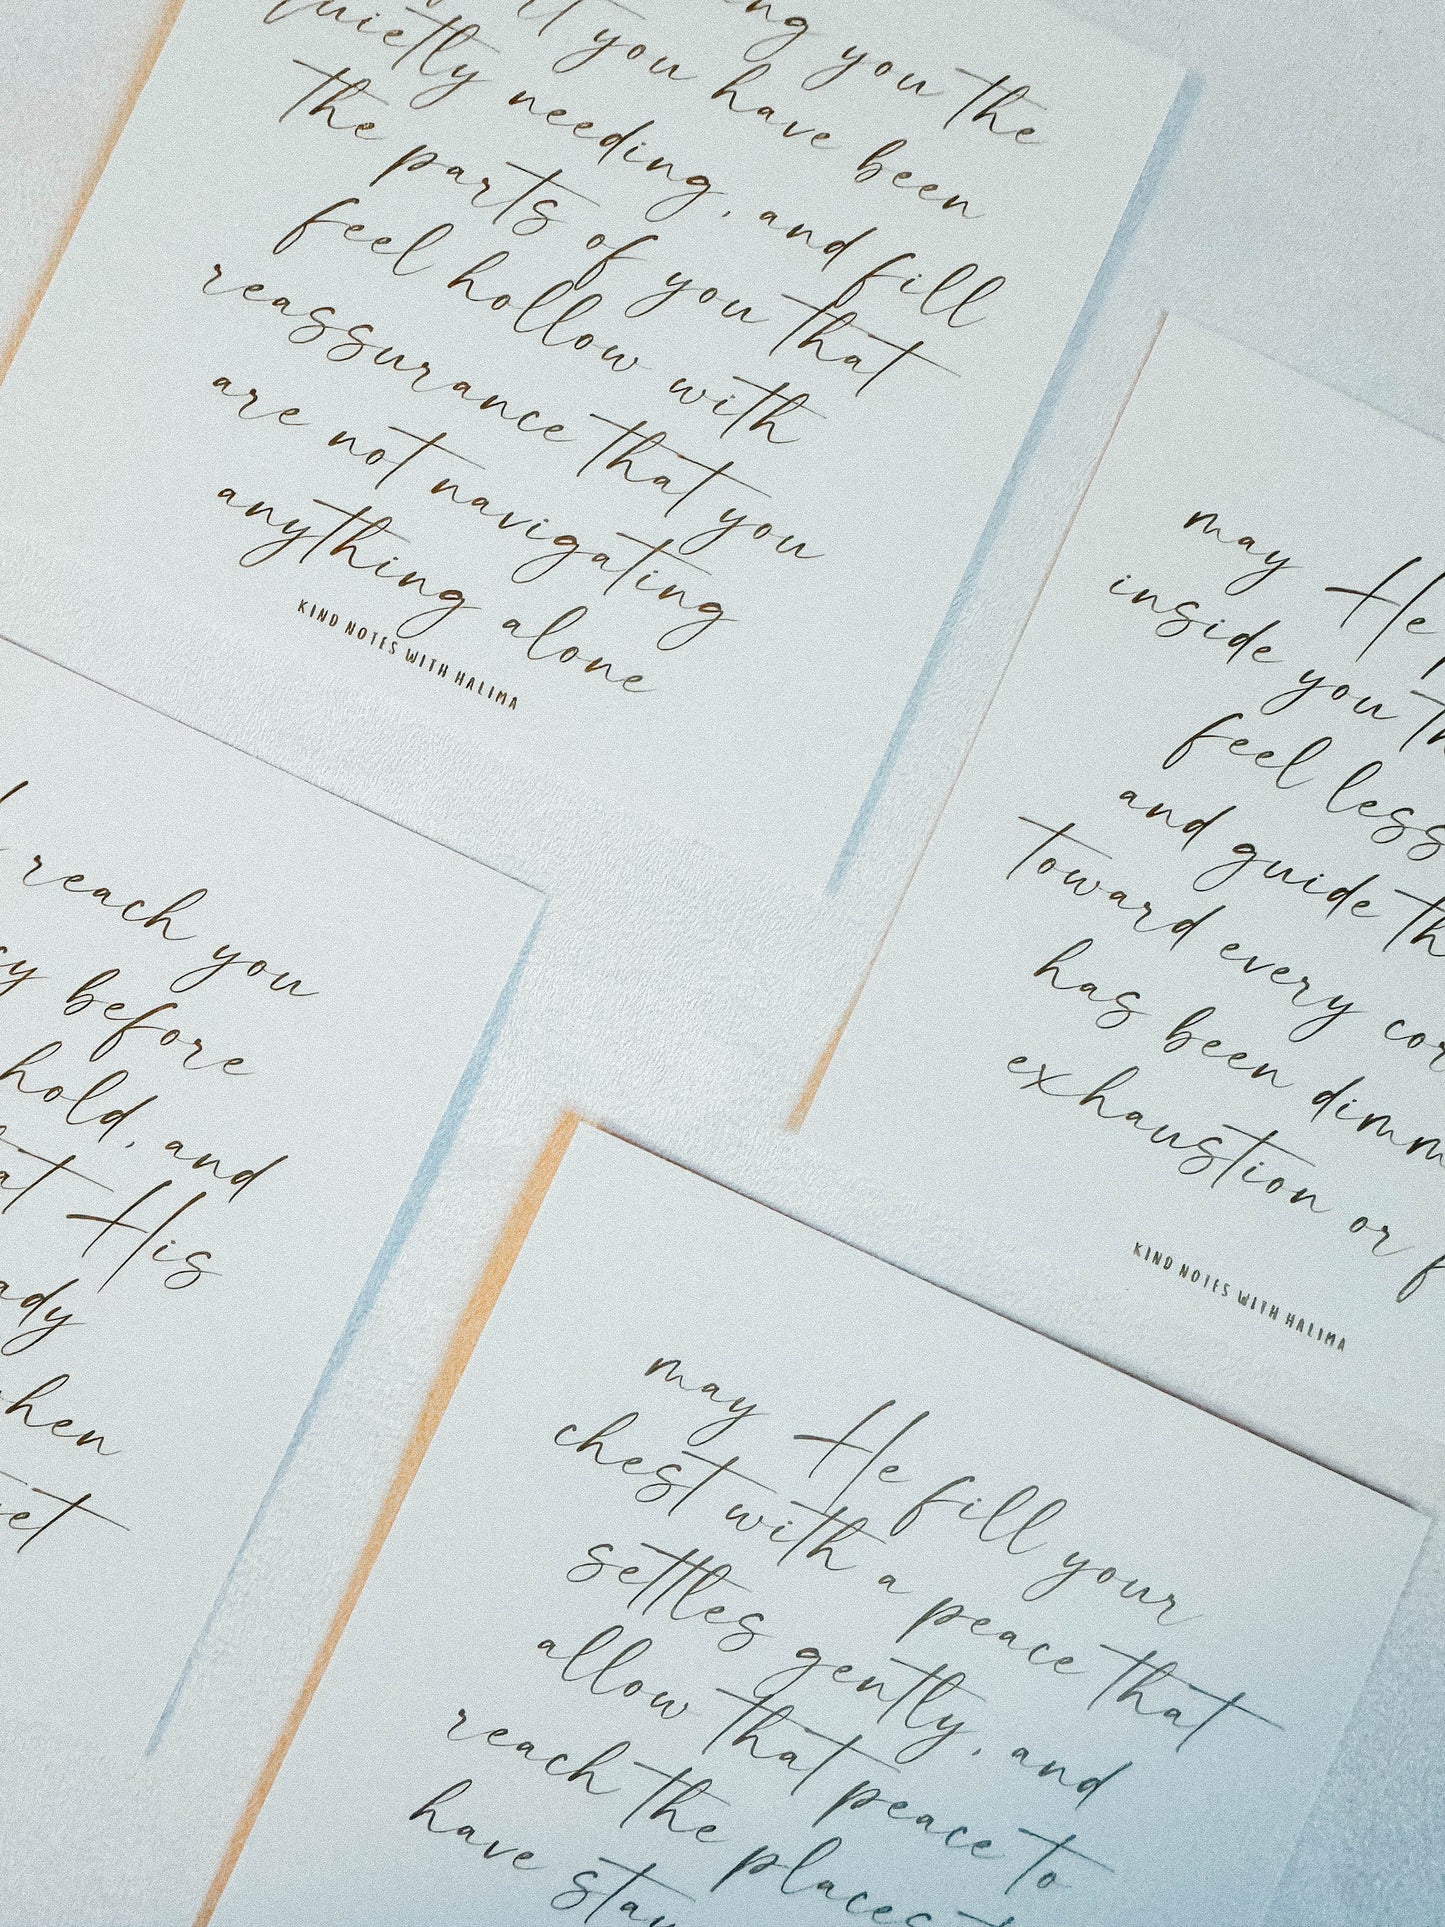 you the
you have been
quietly needing, and fill
the parts of you that
feel hollow with
reassurance that you
are not navigating
anything alone
KIND NOTES WITH HALIMA
may He
inside you
feel less
and guide
toward every
has been
exhaustion or
KIND NOTES WITH HALIMA
reach you
before
hold, and
His
may He fill your
chest with a peace that
settles gently, and
allow that peace to
reach the places
have